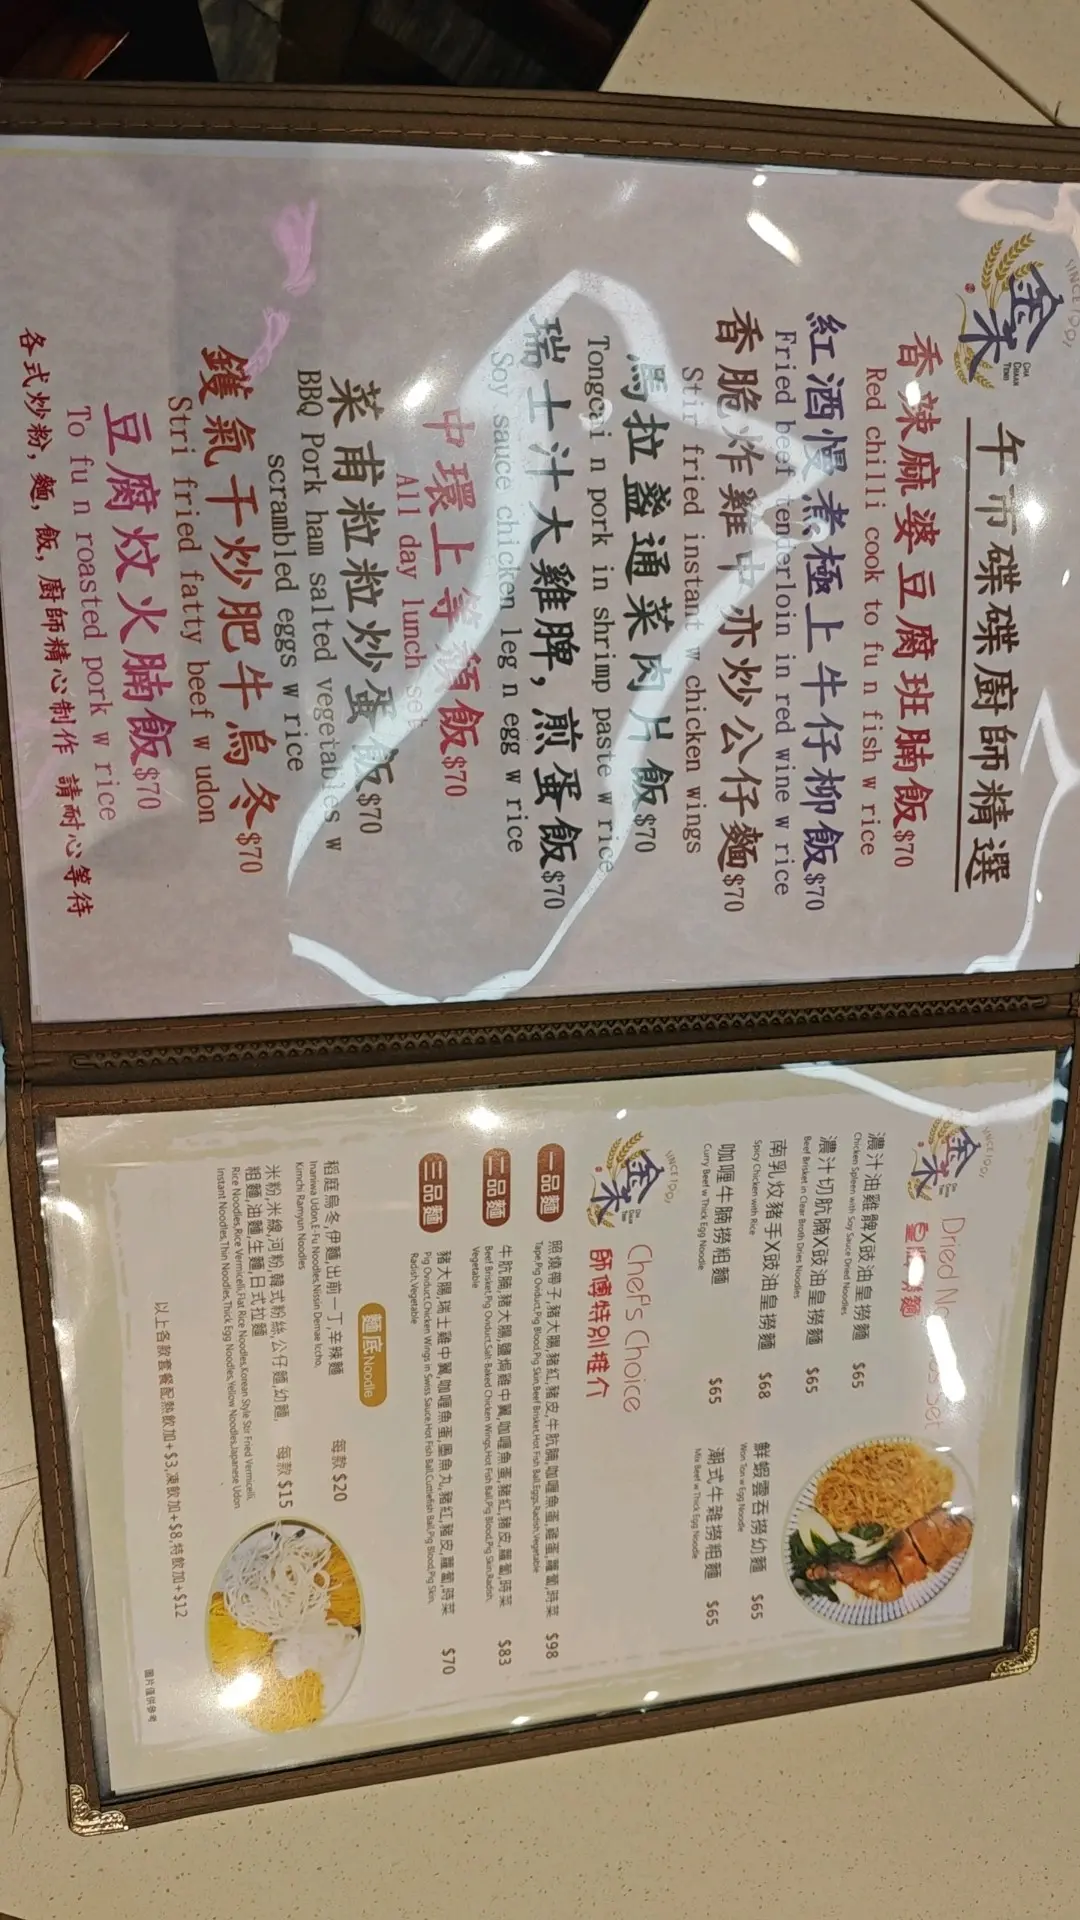 SINCE 1991
金禾
CHA CHAAN TENG
午市碟碟廚師精選
香辣麻婆豆腐班腩飯$70
Red chilli cook to fu n fish w rice
紅酒慢煮極上牛仔柳飯$70
Fried beef tenderloin in red wine w rice
香脆炸雞中亦炒公仔麵$70
Stir fried instant w chicken wings
馬拉盞通菜肉片飯$70
Tongcai n pork in shrimp paste w rice
瑞士汁大雞脾，煎蛋飯$70
Soy sauce chicken leg n egg w rice
中環上等 頹飯$70
All day lunch set
菜甫粒粒炒蛋飯$70
BBQ Pork ham salted vegetables w
scrambled eggs w rice
鑊氣干炒肥牛烏冬$70
Stri fried fatty beef w udon
豆腐炆火腩飯$70
To fu n roasted pork w rice
各式炒粉，麵，飯，廚師精心制作 請耐心等待
金禾
CHA CHAAN TENG
Dried Set
濃汁油雞脾X豉油皇撈麵 $65
Chicken Spleen with Soy Sauce Dried Noodles
濃汁切肮腩X豉油皇撈麵 $65
Beef Brisket in Clear Broth Dries Noodles
南乳炆豬手X豉油皇撈麵 $68
Spicy Chicken with Rice
咖喱牛腩撈粗麵 $65
Curry Beef w Thick Egg Noodle
鮮蝦雲吞撈幼麵 $65
Won Ton w Egg Noodle
潮式牛雜撈粗麵 $65
Mix Beef w Thick Egg Noodle
金禾
CHA CHAAN TENG
Chef's Choice
師傅特別推介
一品麵 照燒帶子,豬大腸,豬紅,豬皮,牛肮腩,咖喱魚蛋,雞蛋,蘿蔔,時菜 $98
Tape,Pig Oviduct,Pig Blood,Pig Skin,Beef Brisket,Hot Fish Ball,Eggs,Radish,Vegetable
二品麵 牛肮腩,豬大腸,鹽焗雞中翼,咖喱魚蛋,豬紅,豬皮,蘿蔔,時菜 $83
Beef Brisket,Pig Oviduct,Salt-Baked Chicken Wings,Hot Fish Ball,Pig Blood,Pig Skin,Radish,
Vegetable
三品麵 豬大腸,瑞士雞中翼,咖喱魚蛋,墨魚丸,豬紅,豬皮,蘿蔔,時菜 $70
Pig Oviduct,Chicken Wings in Swiss Sauce,Hot Fish Ball,Cuttlefish Ball,Pig Blood,Pig Skin,
Radish,Vegetable
麵底 Noodle
稻庭烏冬,伊麵,出前一丁,辛辣麵 每款 $20
Inaniwa Udon,E-Fu Noodles,Nissin Demae Iccho,
Kimchi Ramyun Noodles
米粉,米線,河粉,韓式粉絲,公仔麵,幼麵, 每款 $15
粗麵,油麵,生麵,日式拉麵
Rice Noodles,Rice Vermicelli,Flat Rice Noodles,Korean Style Stir Fried Vermicelli,
Instant Noodles,Thin Noodles,Thick Egg Noodles,Yellow Noodles,Japanese Udon
以上各款套餐配熱飲加+$3,凍飲加+$8,特飲加+$12
圖片僅供參考